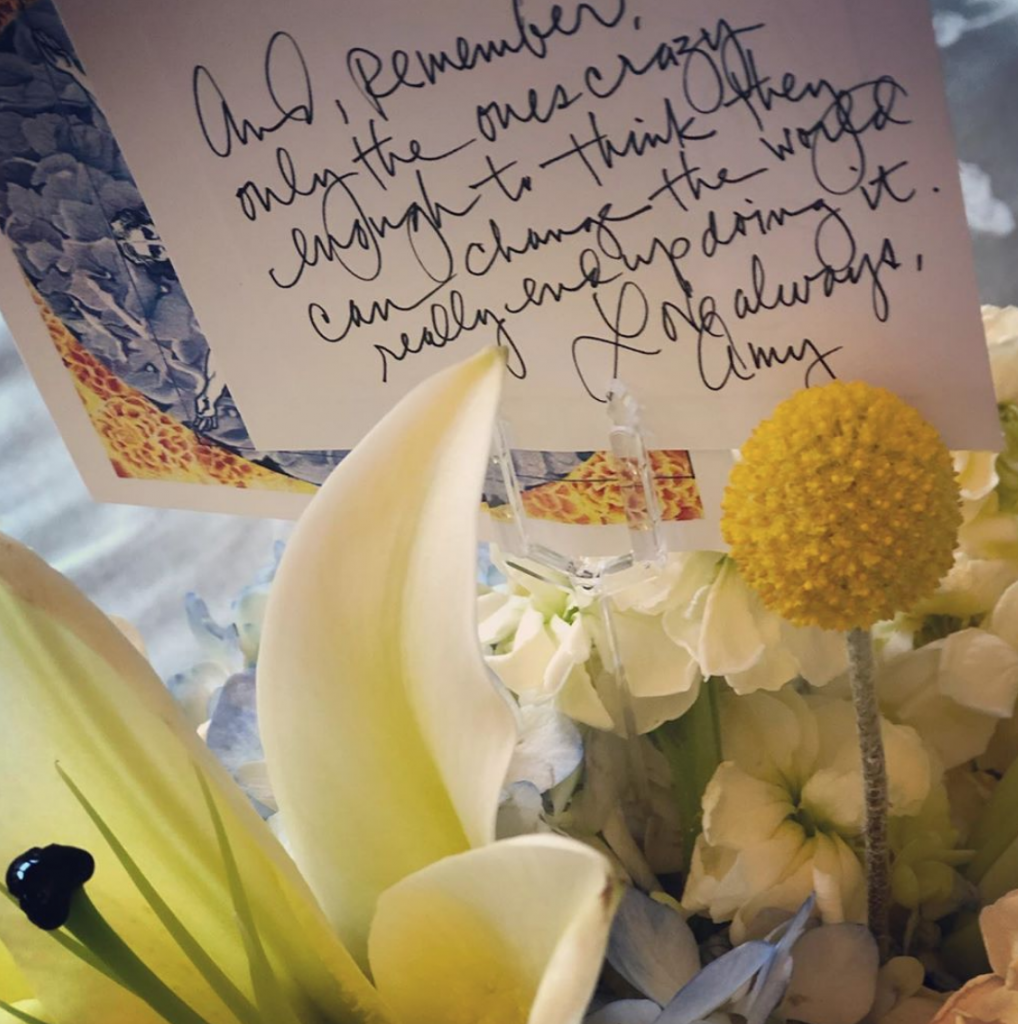 And, Remember,
only the ones crazy
enough to think they
can change the world
really end up doing it.
Love always,
Amy